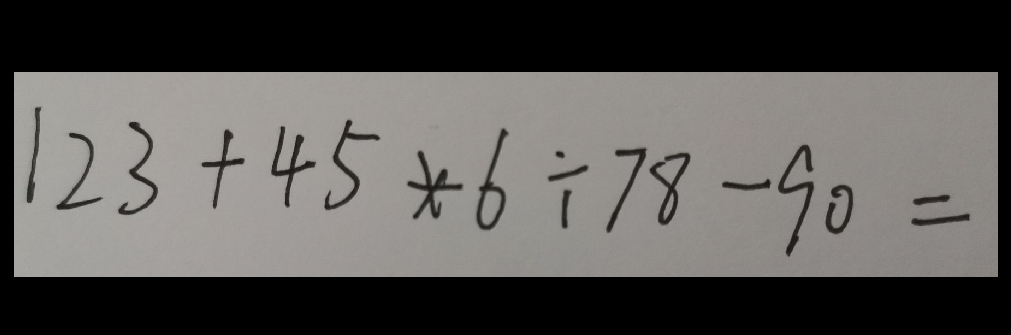 123+45*6÷78-90=